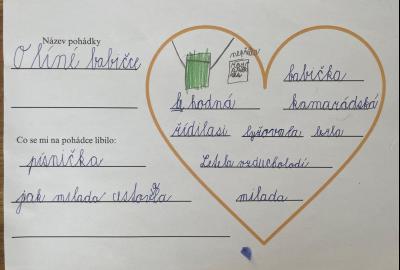 Název pohádky
O líné babičce
Co se mi na pohádce líbilo:
písnička
jak milada cestovala
nepřítel
babička
hodná
kamarádská
řídilasi
lyžovala
letěla vzducholodí
milada